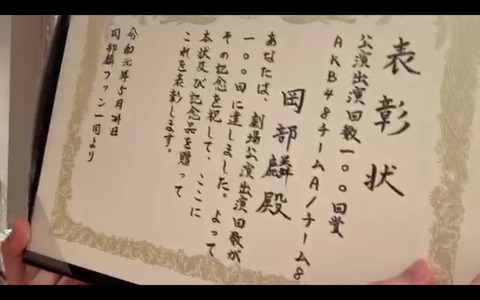 表彰状
公演出演回数一〇〇回賞
AKB48チームA/チーム8
岡部麟殿
あなたは、劇場公演出演回数が
一〇〇回に達しました。よって
その記念を祝して、ここに
本状及び記念品を贈って
これを表彰します。
令和元年5月 日
岡部麟ファン一同より